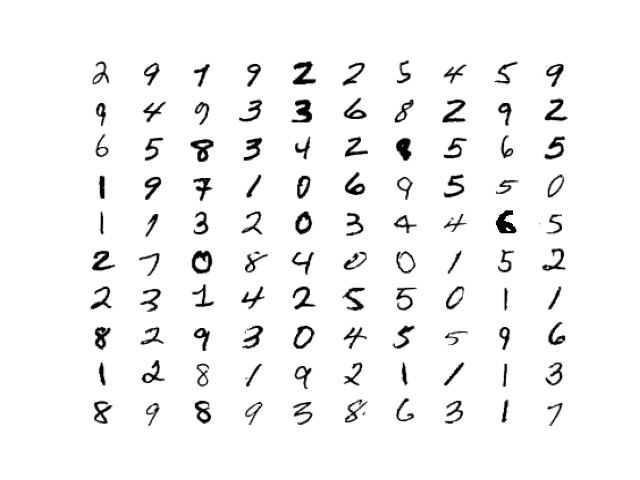 2 9 1 9 2 2 5 4 5 9
9 4 9 3 3 6 8 2 9 2
6 5 8 3 4 2 8 5 6 5
1 9 7 1 0 6 9 5 5 0
1 1 3 2 0 3 4 4 6 5
2 7 0 8 4 0 0 1 5 2
2 3 1 4 2 5 5 0 1 1
8 2 9 3 0 4 5 5 9 6
1 2 8 1 9 2 1 1 1 3
8 9 8 9 3 8 6 3 1 7